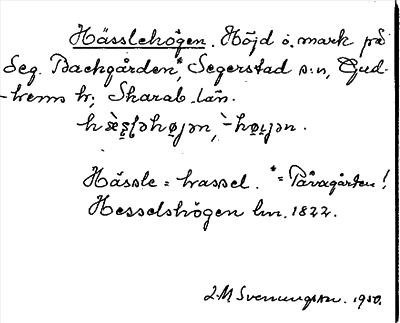 Hässlehögen. Höjd o. mark på
Seg. Backgården,* Segerstad s:n, Gud-
-hems hr; Skarab. län.
Hässle = hassel. *= Påvagården!
Hesselshögen lm. 1822.
L.M. Svenungsson. 1950.